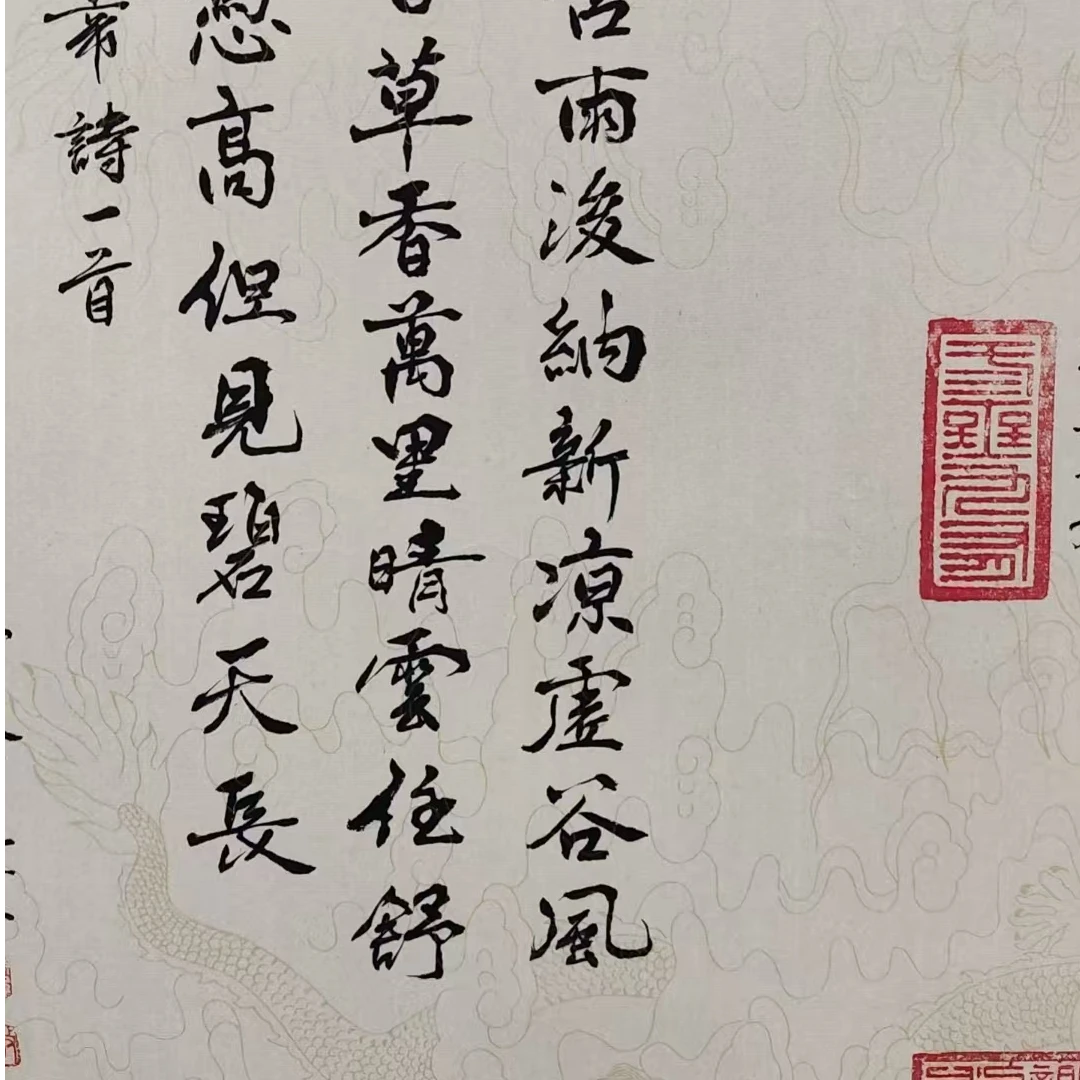 雨後納新涼虛谷風
草香萬里晴雲任舒
高但見碧天長
詩一首